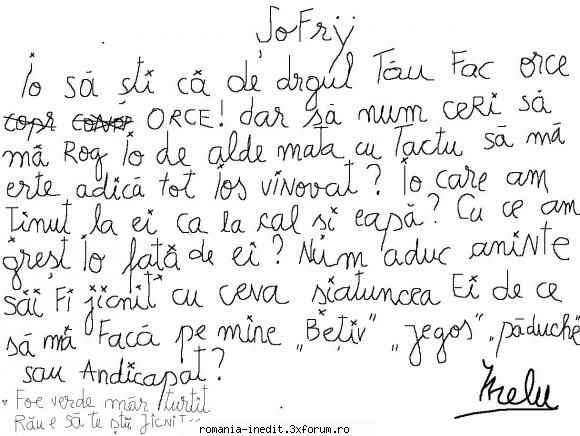 Șofrÿ
Io să ști că de drgul Tău Fac orce
ORCE! dar să num ceri să
mă Rog io de alde mata cu Tactu să mă
erte adică tot ios vinovat? Io care am
ținut la ei ca la cal si eapă? Cu ce am
greșt Io față de ei? Num aduc aminte
săi Fi jicnit* cu ceva siatuncea Ei de ce
să mă Facă pe mine „Bețiv" „jegos" „păduchē
sau Andicapat?
* Foe verde măr turtit
Rău e să te știi jicnit
Irelu
romania-inedit.3xforum.ro